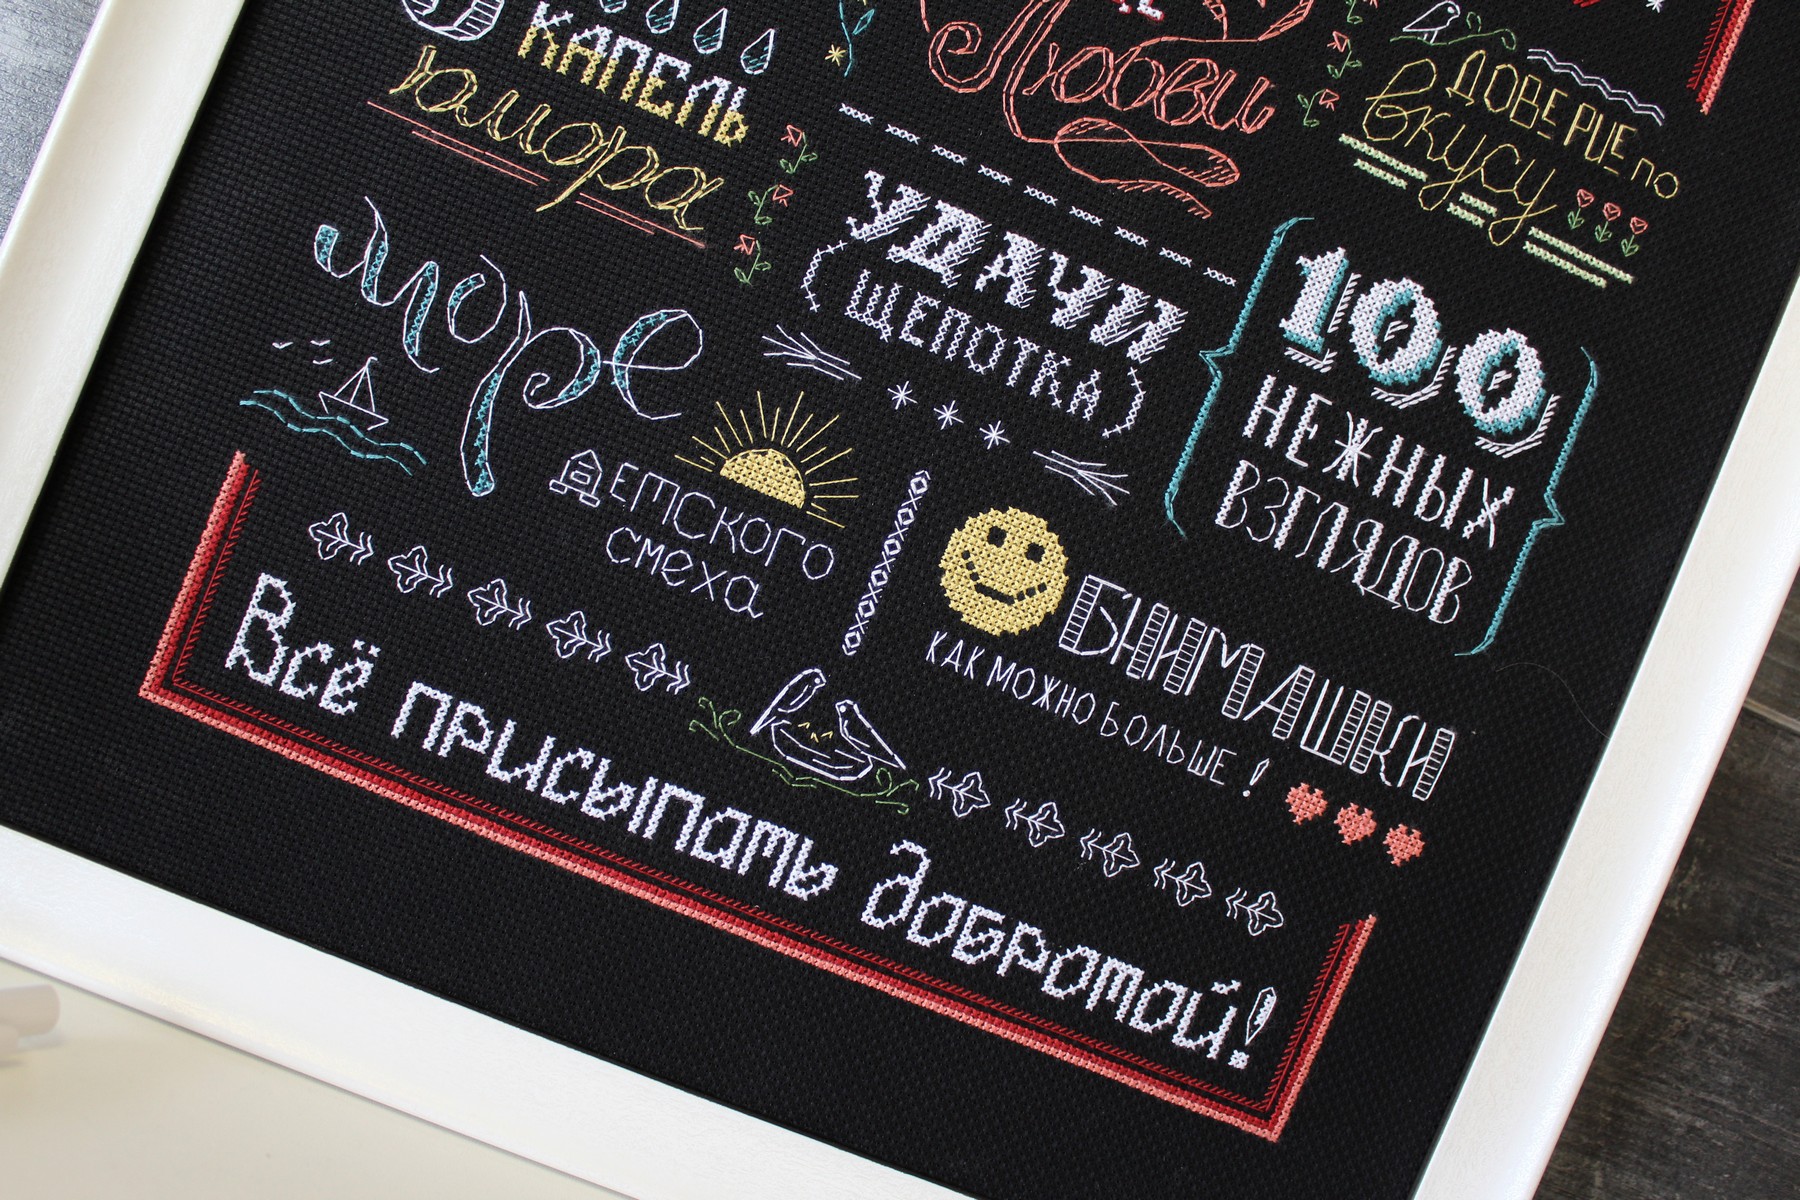 КАПЕЛЬ
юмора
Любви
ДОВЕРИЕ ПО
вкусу
УДАЧИ
(ЩЕПОТКА)
100
НЕЖНЫХ
ВЗГЛЯДОВ
море
ДЕТСКОГО
смеха
ОБНИМАШКИ
КАК МОЖНО БОЛЬШЕ!
Всё присыпать добротой!